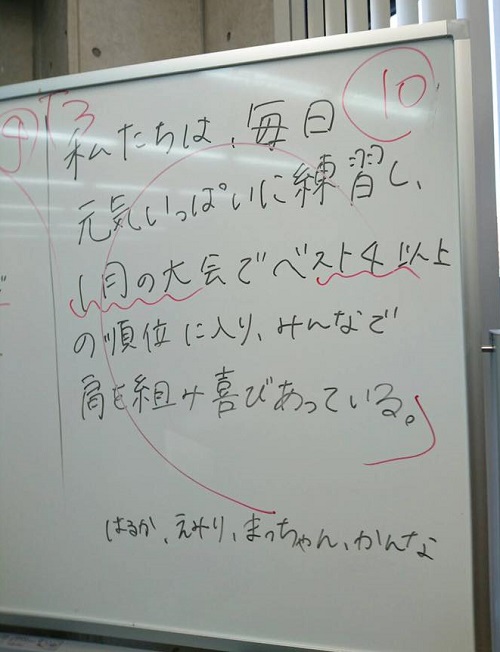 10
「私たちは、毎日
元気いっぱいに練習し、
1月の大会でベスト4以上
の順位に入り、みんなで
肩を組み喜びあっている。」
はるか、えみり、まっちゃん、かんな